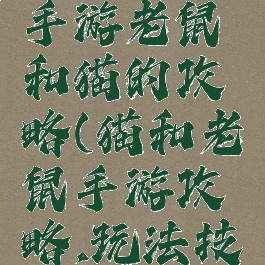 手游老鼠
和猫的攻
略(猫和老
鼠手游攻
略.玩法技